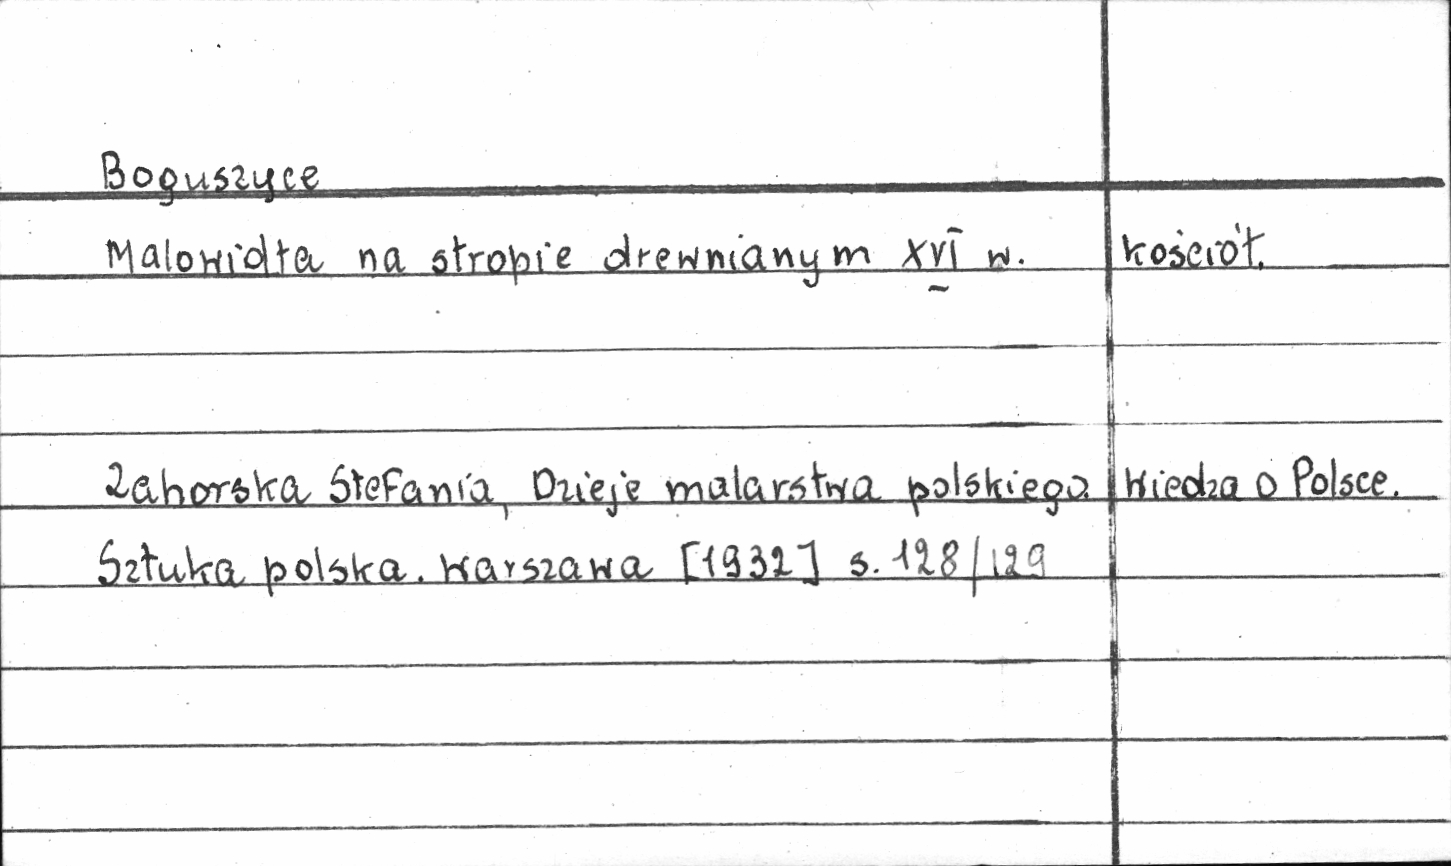 Boguszyce
Malowidła na stropie drewnianym XVI w. kościół.
Zahorska Stefania, Dzieje malarstwa polskiego. Wiedza o Polsce.
Sztuka polska. Warszawa [1932] s. 128/129